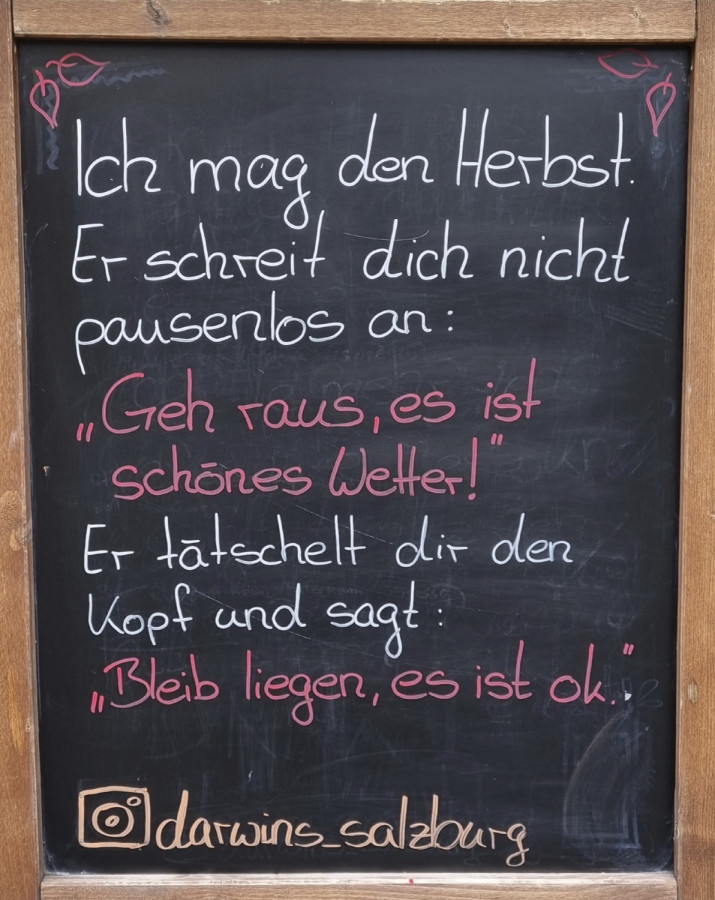 Ich mag den Herbst.
Er schreit dich nicht
pausenlos an:
„Geh raus, es ist
schönes Wetter!"
Er tätschelt dir den
Kopf und sagt:
„Bleib liegen, es ist ok."
darwins_salzburg